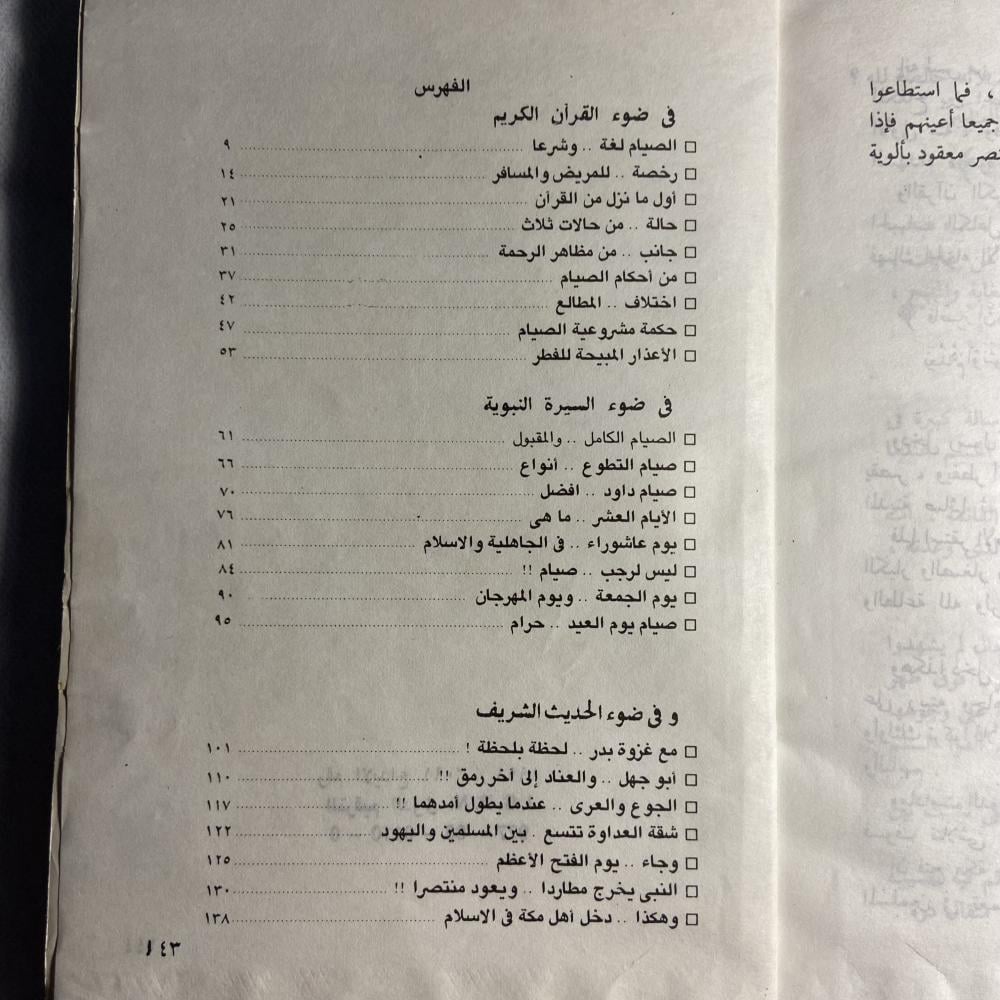 الفهرس
فى ضوء القرآن الكريم
□ الصيام لغة .. وشرعا ........ ٩
□ رخصة .. للمريض والمسافر ........ ١٤
□ أول ما نزل من القرآن ........ ٢١
□ حالة .. من حالات ثلاث ........ ٢٥
□ جانب .. من مظاهر الرحمة ........ ٣١
□ من أحكام الصيام ........ ٣٧
□ اختلاف .. المطالع ........ ٤٢
□ حكمة مشروعية الصيام ........ ٤٧
□ الأعذار المبيحة للفطر ........ ٥٣
فى ضوء السيرة النبوية
□ الصيام الكامل .. والمقبول ........ ٦١
□ صيام التطوع .. أنواع ........ ٦٦
□ صيام داود .. افضل ........ ٧٠
□ الأيام العشر .. ما هى ........ ٧٦
□ يوم عاشوراء .. فى الجاهلية والاسلام ........ ٨١
□ ليس لرجب .. صيام !! ........ ٨٤
□ يوم الجمعة .. ويوم المهرجان ........ ٩٠
□ صيام يوم العيد .. حرام ........ ٩٥
و فى ضوء الحديث الشريف
□ مع غزوة بدر .. لحظة بلحظة ! ........ ١٠١
□ أبو جهل .. والعناد إلى أخر رمق !! ........ ١١٠
□ الجوع والعرى .. عندما يطول أمدهما !! ........ ١١٧
□ شقة العداوة تتسع . بين المسلمين واليهود ........ ١٢٢
□ وجاء .. يوم الفتح الأعظم ........ ١٢٥
□ النبى يخرج مطاردا .. ويعود منتصرا !! ........ ١٣٠
□ وهكذا .. دخل أهل مكة فى الاسلام ........ ١٣٨
١٤٣
، فما استطاعوا
جميعا أعينهم فإذا
معقود بألوية